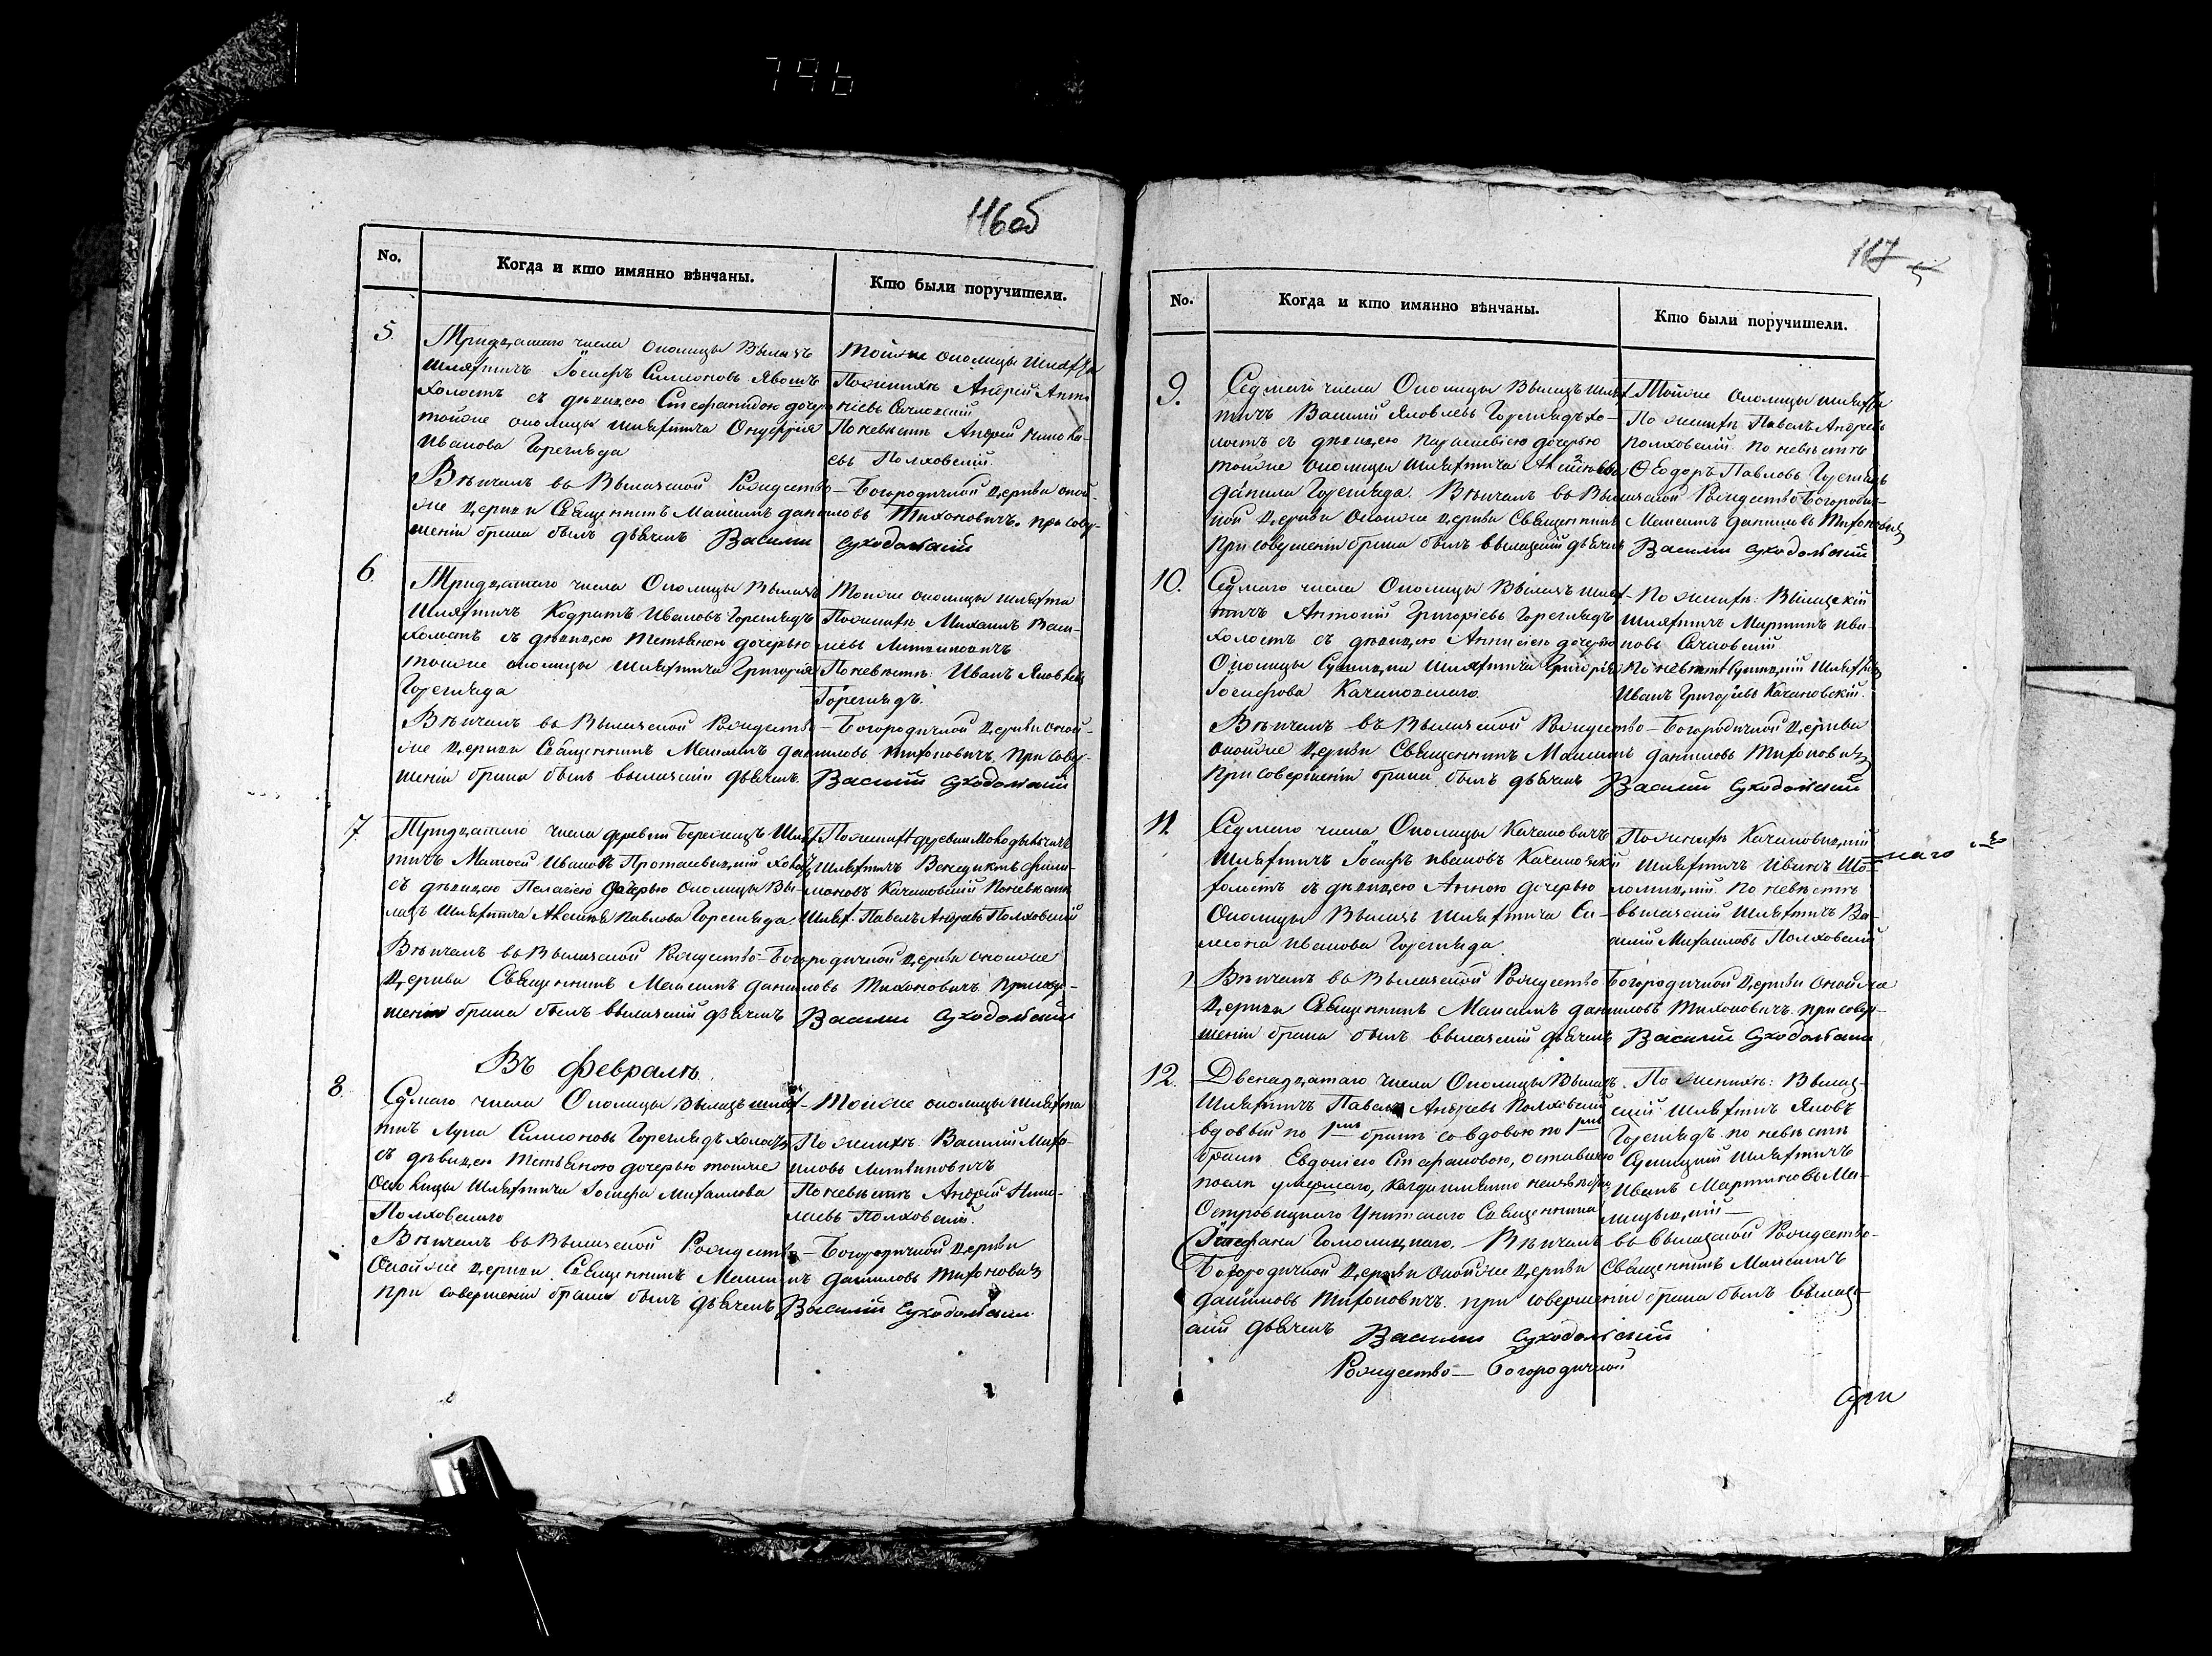 796
116об
No.
Когда и кто имянно вѣнчаны.
Кто были поручители.
5.
Тридцатаго числа Околицы Вылазъ
Шляхтичъ Іосифъ Симіоновъ Явошъ
холостъ съ дѣвицею Стефанидою дочерью
тойже околицы шляхтича Онуфрія
Иванова Горегляда
Тойже околицы шляхта
По женихѣ Андрей Анто-
ніевъ Сачковскій
По невѣстѣ Андрей Никола-
евъ Полховскій.
Вѣнчалъ въ Вылазской Рождество-Богородичной Церкви оной-
же церкви Священникъ Максимъ Даниловъ Тихоновичъ. При совер-
шеніи брака былъ дьячекъ Василій Суходольскій
6.
Тридцатаго числа Околицы Вылазъ
Шляхтичъ Кодратъ Ивановъ Горегляд
холостъ съ дѣвицею Тетьяною дочерью
тойже околицы шляхтича Григорія
Горегляда
Тойже околицы шляхта
По женихѣ Михаилъ Васи-
лиевъ Литвиновичъ
По невѣстѣ: Иванъ Яковлевъ
Гореглядъ.
Вѣнчалъ въ Вылазской Рождество-Богородичной Церкви оной-
же церкви Священникъ Максимъ Даниловъ Тихоновичъ, При совер-
шеніи брака былъ вылазскій дьячекъ Василій Суходольскій
7.
Тридцатаго числа деревни Бережецъ Шлях-
тичъ Матвей Ивановъ Протасевицкій холостъ
съ дѣвицею Пелагіею дочерью Околицы Вы-
лазъ Шляхтича Алексѣя Павлова Горегляда.
По женихѣ деревни
Шляхтичъ Венедиктъ Фили-
моновъ Качановскій По невѣстѣ
Шлях. Павелъ Андреевъ Полховскій
Вѣнчалъ въ Вылазской Рождество-Богородичной Церкви оной же
Церкви Священникъ Максимъ Даниловъ Тихоновичъ. При совер-
шеніи брака былъ вылазскій дьячекъ Василій Суходольскій
Въ Февралѣ.
8.
Седмаго числа Околицы Вылазъ шлях-
тичъ Лука Симіоновъ Гореглядъ холостъ
съ дѣвицею Тетьяною дочерью тойже
Околицы Шляхтича Іосифа Михайлова
Полховскаго
Тойже околицы шляхта
По женихѣ: Василій Миха-
иловъ Литвиновичъ
По невѣстѣ Андрей Нико-
лаевъ Полховскій.
Вѣнчалъ въ Вылазской Рождество-Богородичной Церкви
Оной же церкви Священникъ Максимъ Даниловъ Тихоновичъ
при совершеніи брака былъ дьячекъ Василій Суходольскій
117
No.
Когда и кто имянно вѣнчаны.
Кто были поручители.
9.
Седмаго числа Околицы Вылазъ шлях-
тичъ Василій Яковлевъ Гореглядъ хо-
лостъ съ дѣвицею Параскевіею дочерью
тойже околицы шляхтича
Данила Горегляда. Вѣнчалъ въ Вылазской Рождество Богородич-
Тойже околицы шляхта
По женихѣ Павелъ Андреевъ
Полховскій. По невѣстѣ
Ѳеодоръ Павловъ Гореглядъ
ной Церкви Оной же церкви Священникъ Максимъ Даниловъ Тихоновичъ
При совершеніи брака былъ вылазскій дьячекъ Василій Суходольскій
10.
Седмаго числа Околицы Вылазъ шлях-
тичъ Антоній Григоріевъ Гореглядъ
холостъ съ дѣвицею дочерью
Околицы шляхтича Григорія
Іосифова Качановскаго.
По женихѣ: Вылазскій
шляхтичъ Мартинъ Ива-
новъ Сачковскій
По невѣстѣ
Иванъ Григоріевъ Качановскій.
Вѣнчалъ въ Вылазской Рождество-Богородичной Церкви
оной же Церкви Священникъ Максимъ Даниловъ Тихоновичъ
При совершеніи брака былъ дьячекъ Василій Суходольскій
11.
Седмаго числа Околицы Качановичъ
Шляхтичъ Іосифъ Ивановъ Качановскій
холостъ съ дѣвицею Анною дочерью
Околицы Вылазъ Шляхтича Си-
міона Иванова Горегляда.
По женихѣ
Шляхтичъ Иванъ
По невѣстѣ
вылазскій шляхтичъ Ва-
силій Михайловъ Полховскій
Вѣнчалъ въ Вылазской Рождество Богородичной Церкви оной же
Церкви Священникъ Максимъ Даниловъ Тихоновичъ. при совер-
шеніи брака былъ вылазскій дьячекъ Василій Суходольскій
12.
Двенадцатаго числа Околицы Вылазъ
Шляхтичъ Павелъ Андреевъ Полховскій
вдовый по бракѣ со вдовою по
бракѣ Евдокіею Стефановою, оставшею
послѣ умершаго, когда именно неизвѣстно
Островицкаго Унитскаго Священника
Стефана Гомолицкаго. Вѣнчалъ въ Вылазской Рождество-
По женихѣ: Вылаз-
скій шляхтичъ Яковъ
Гореглядъ. по невѣстѣ
шляхтичъ
Иванъ Мартиновъ
Богородичной Церкви Оной же Церкви Священникъ Максимъ
Даниловъ Тихоновичъ. при совершеніи брака былъ вылаз-
скій дьячекъ Василій Суходольскій
Рождество-Богородичной